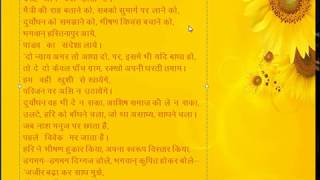 मैत्री की राह बताने को, सबको सुमार्ग पर लाने को,
दुर्योधन को समझाने को, भीषण विध्वंस बचाने को,
भगवान् हस्तिनापुर आये,
पांडव का संदेशा लाये।
'दो न्याय अगर तो आधा दो, पर, इसमें भी यदि बाधा हो,
तो दे दो केवल पाँच ग्राम, रक्खो अपनी धरती तमाम।
हम वही खुशी से खायेंगे,
परिजन पर असि न उठायेंगे।
दुर्योधन वह भी दे ना सका, आशिष समाज की ले न सका,
उलटे, हरि को बाँधने चला, जो था असाध्य, साधने चला।
जब नाश मनुज पर छाता है,
पहले विवेक मर जाता है।
हरि ने भीषण हुंकार किया, अपना स्वरूप विस्तार किया,
डगमग-डगमग दिग्गज डोले, भगवान् कुपित होकर बोले-
'जंजीर बढ़ा कर साध मुझे,